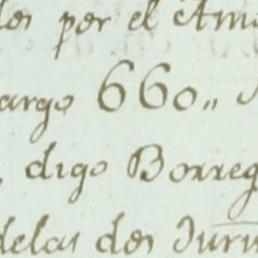 los por el
argo 660,,
digo Borreg
delas dos